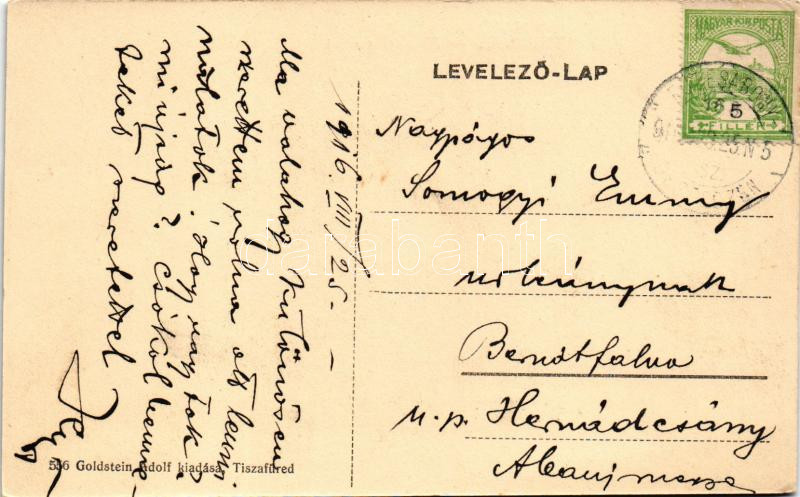 LEVELEZŐ-LAP
MAGYAR KIR. POSTA
5
FILLÉR
1916. VIII/25.
Ma valahogy különösen
szerettem volna ott lenni
nálatok. Hogy vagytok s
mi újság? Csókol benne-
teket szeretettel
Nagyságos
Somogyi Emmy
urleánynak
Bernátfalva
u. p. Hernádcsány
Abauj megye
586 Goldstein Adolf kiadása, Tiszafüred
darabanth